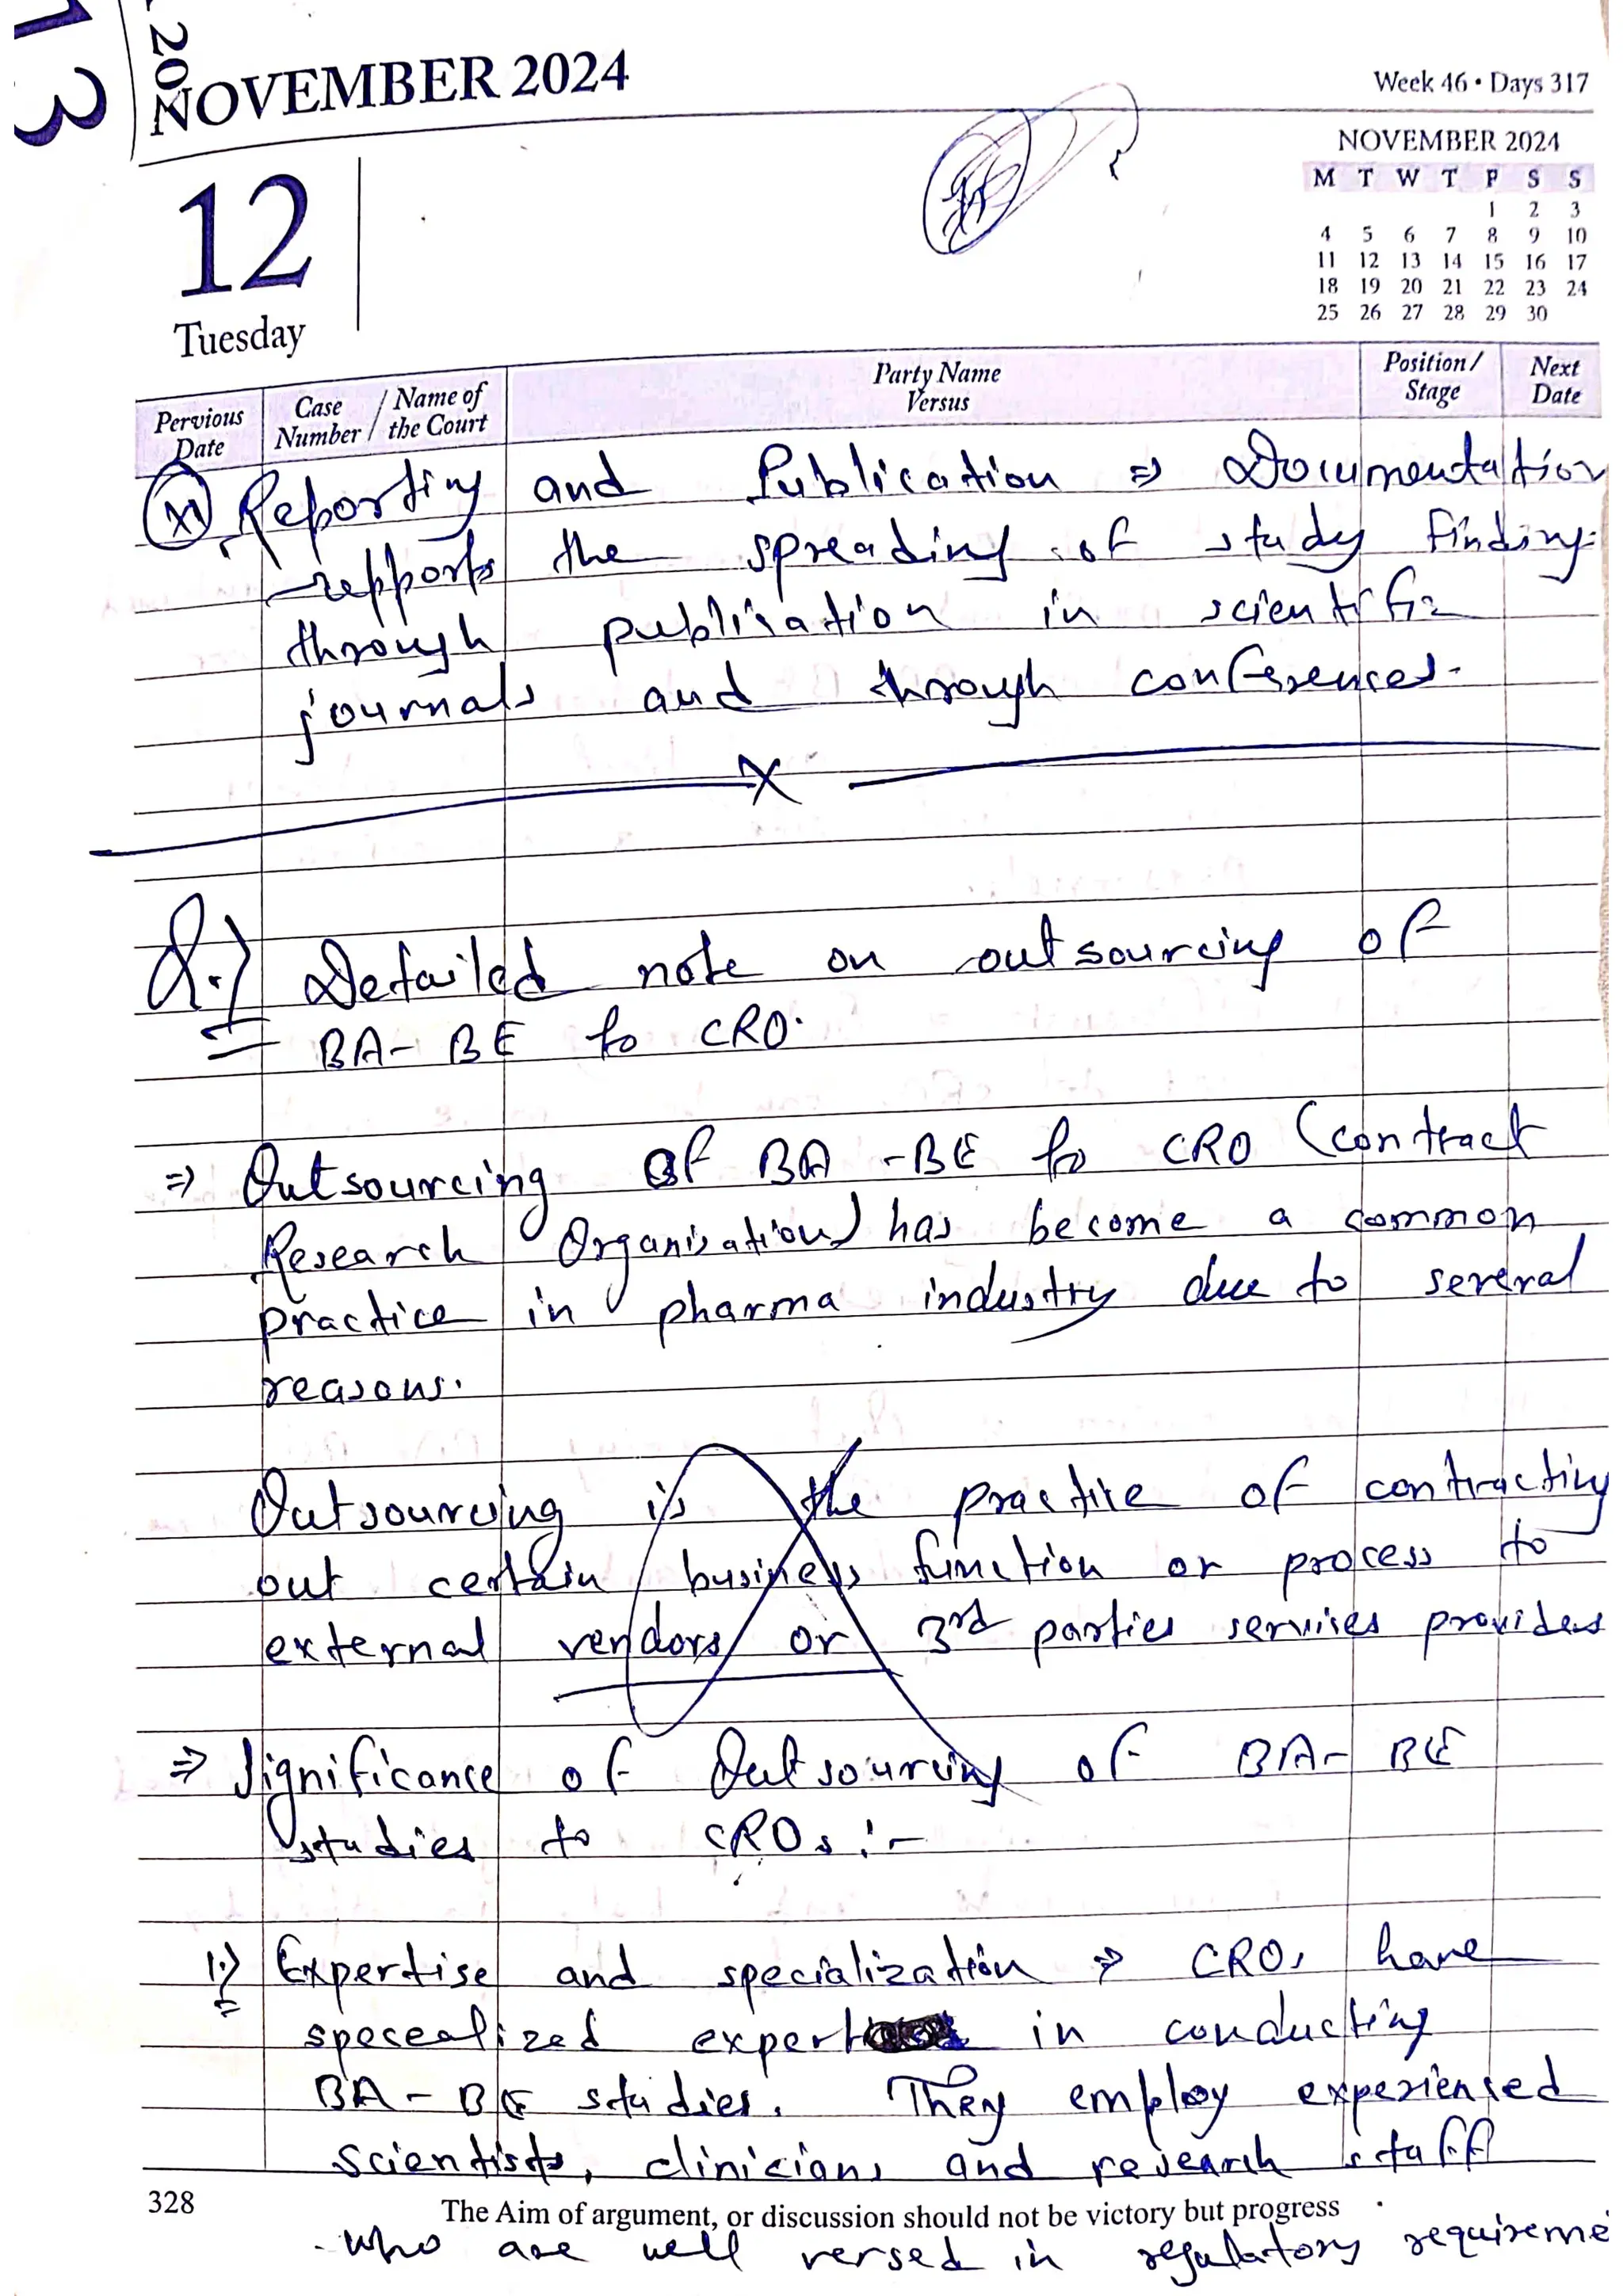 13
202
NOVEMBER 2024
Week 46 • Days 317
12
Tuesday
NOVEMBER 2024
M T W T F S S
1 2 3
4 5 6 7 8 9 10
11 12 13 14 15 16 17
18 19 20 21 22 23 24
25 26 27 28 29 30
Pervious Date
Case Number / Name of the Court
Party Name Versus
Position / Stage
Next Date
XI Reporting and Publication ⇒ Documentation
repports the spreading of study finding
through publication in scientific
journals and through conferences.
X
Q.) Detailed note on outsourcing of
BA - BE to CRO.
⇒ Outsourcing of BA - BE to CRO (contract
Research Organisation) has become a common
practice in pharma industry due to several
reasons.
Outsourcing is the practice of contracting
out certain business function or process to
external vendors or 3rd parties services providers
⇒ Significance of Outsourcing of BA - BE
studies to CROs :-
1.) Expertise and specialization ⇒ CROs have
specealized expert in conducting
BA - BE studies. They employ experienced
scientists, clinicians and research staff
328
The Aim of argument, or discussion should not be victory but progress
who are well versed in regulatory requireme